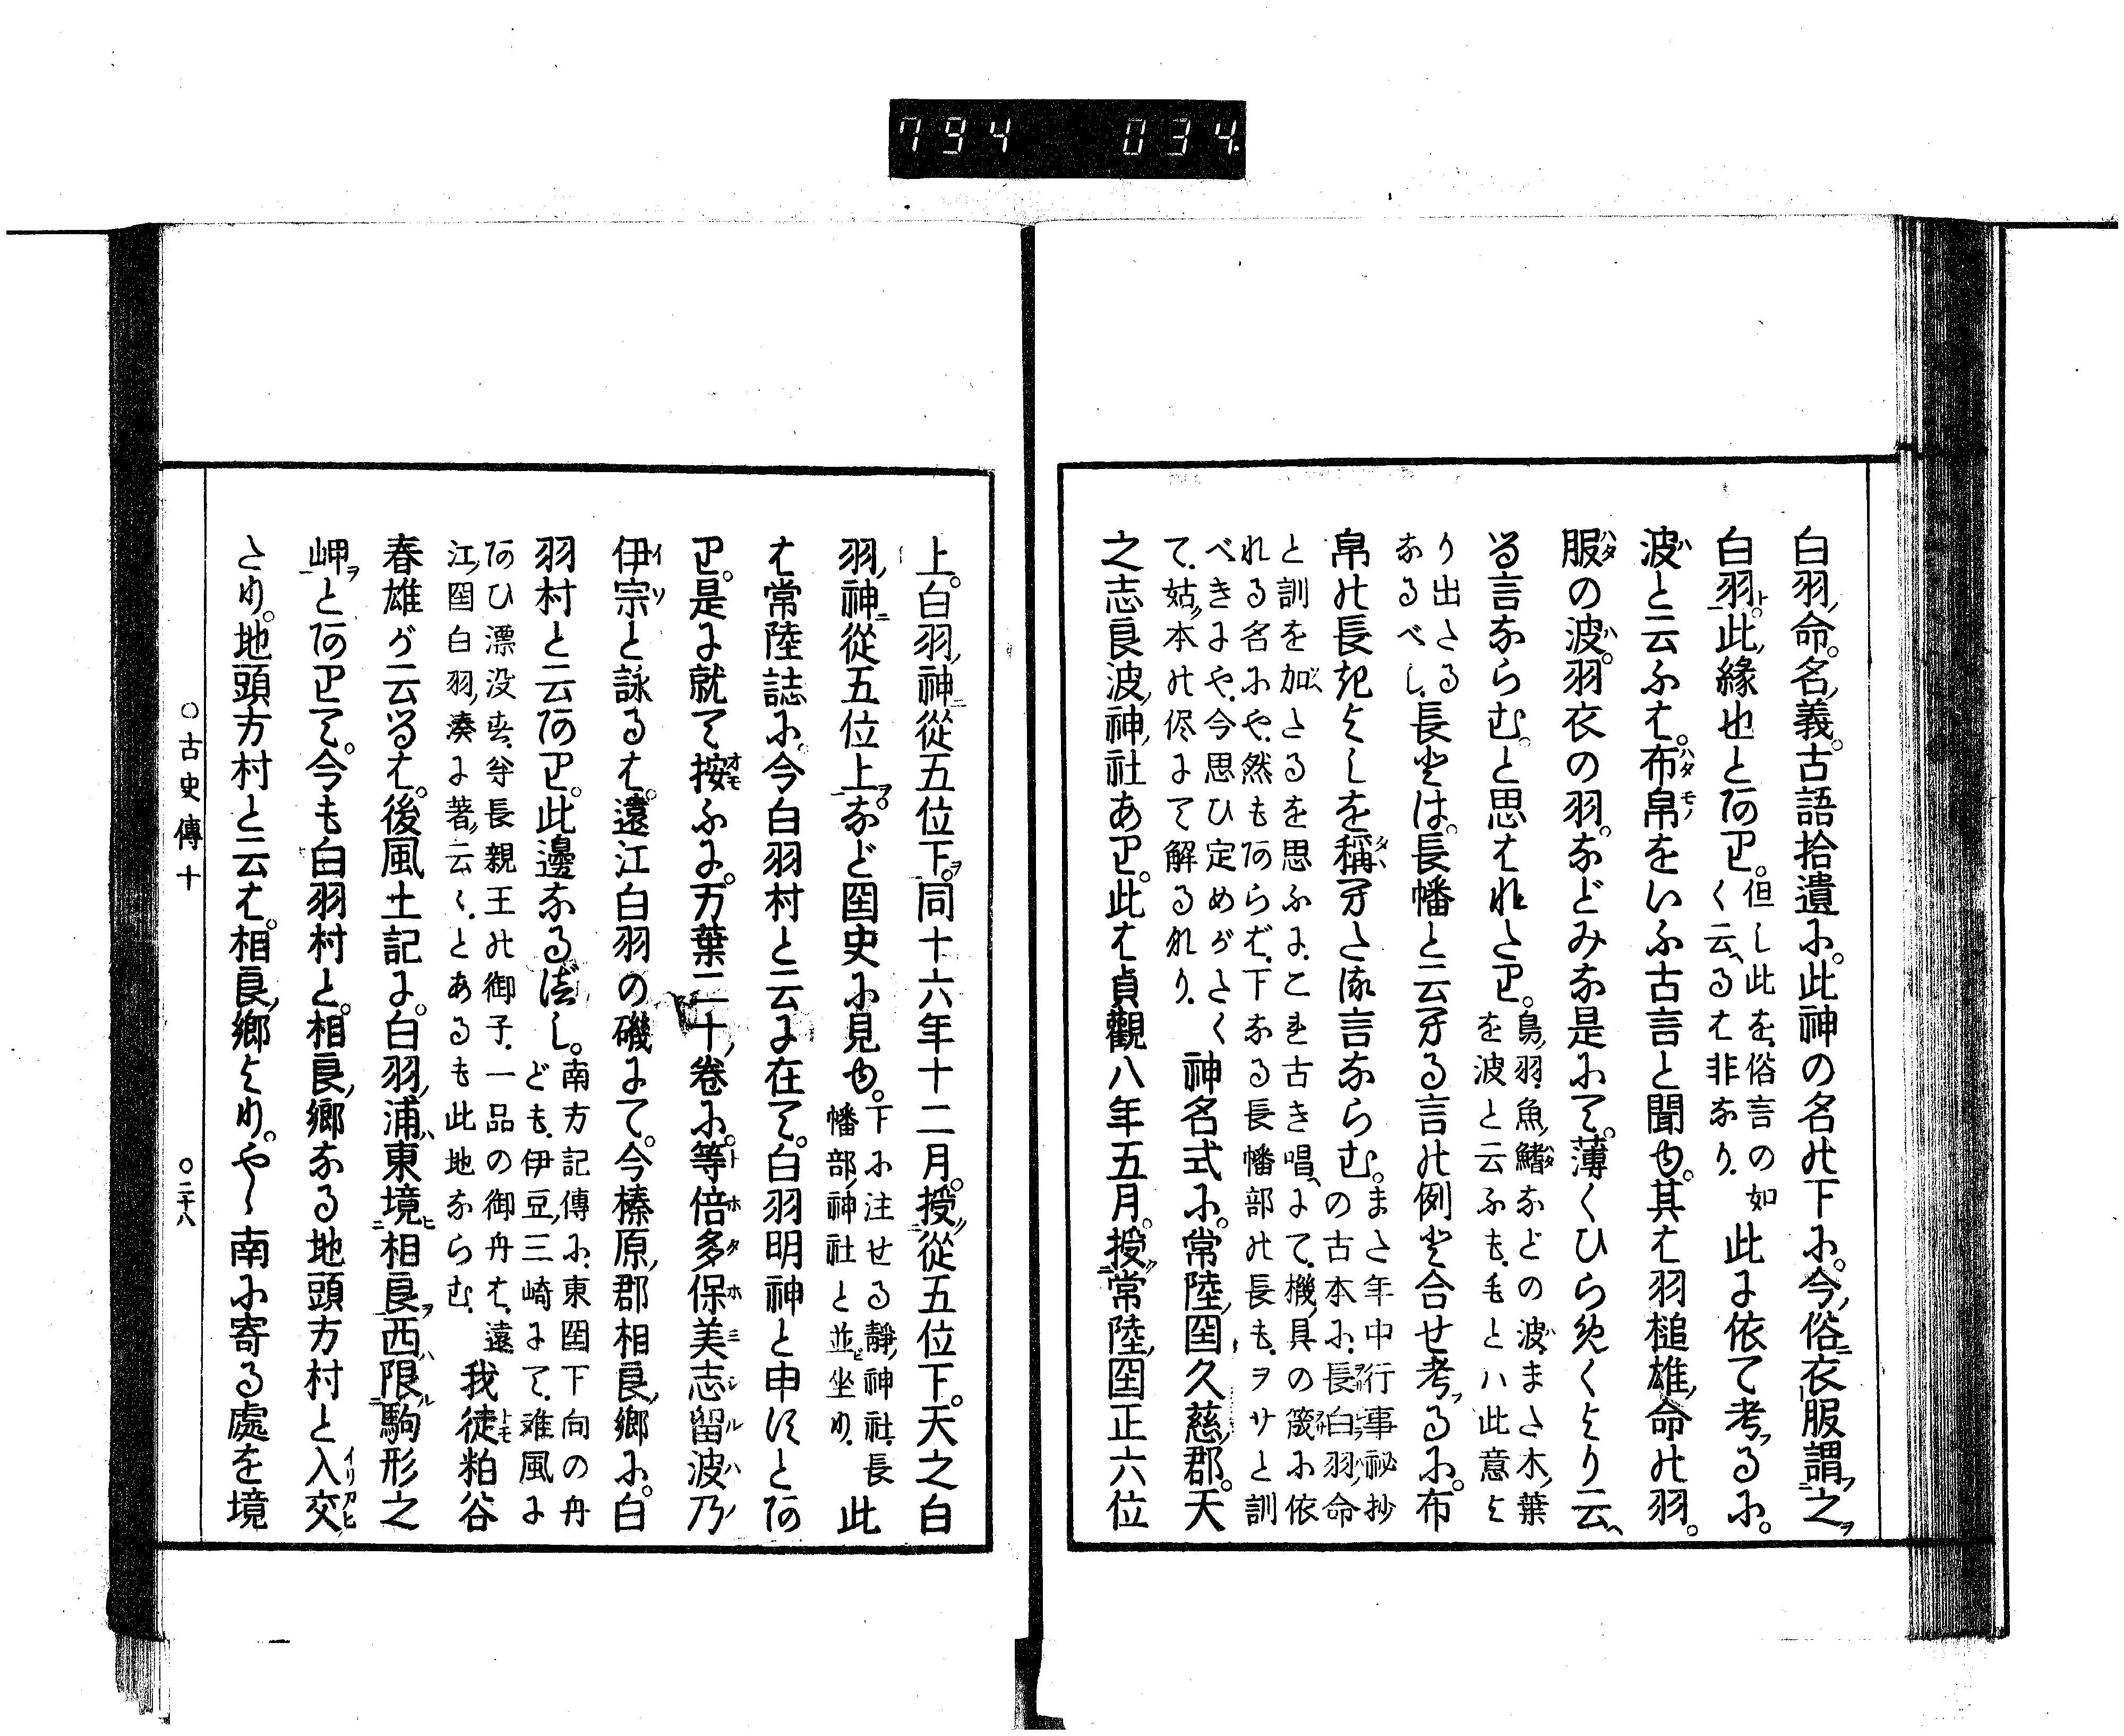 794 034.
白羽命。名義。古語拾遺に。此神の名の下に。今俗衣服謂之
白羽。此縁也とあり。但し此を俗言の如
く云るは非なり。此に依て考るに。
波と云ふは。布帛をいふ古言と聞ゆ。其は羽槌雄命の羽。
服の波。羽衣の羽。などみな是にて。薄くひらめくより云
る言ならむ。と思はれたり。鳥羽魚鰭などの波また木葉
を波と云ふも、もとハ此意よ
り出たる
なるべし。長とは。長幡と云する言の例と合せ考るに。布
帛の長きよしを稱すたる言ならむ。また年中行事秘抄
の古本に、長白羽命
と訓を加たるを思ふに、こは古き唱にて、機具の筬に依
れる名にや、然もあらば、下なる長幡部の長も、ヲサと訓
べきにや、今思ひ定めがたく
て、姑本の侭にて解るなり。神名式に。常陸国久慈郡。天
之志良波神社あり。此は貞觀八年五月。授常陸国正六位
上。白羽神從五位下。同十六年十二月。授從五位下。天之白
羽神從五位上。など国史に見ゆ。下に注せる靜神社、長
幡部神社と並坐り。此
は常陸誌に。今白羽村と云に在て。白羽明神と申すとあ
り。是に就て按ふに。万葉二十卷に。等倍多保美志留波乃
伊宗と詠るは。遠江白羽の磯にて。今榛原郡相良郷に。白
羽村と云あり。此邊なるべし。南方記傳に、東国下向の舟
ども、伊豆三崎にて、難風に
あひ漂没す、尊長親王の御子、一品の御舟は、遠
江国白羽湊に著云く、とあるも此地ならむ。我徒粕谷
春雄が云るは。後風土記に。白羽浦東境相良西限駒形之
岬とありて。今も白羽村と。相良郷なる地頭方村と入交
たり。地頭方村と云は。相良郷より。やゝ南に寄る處を境
○古史傳十 ○二十八